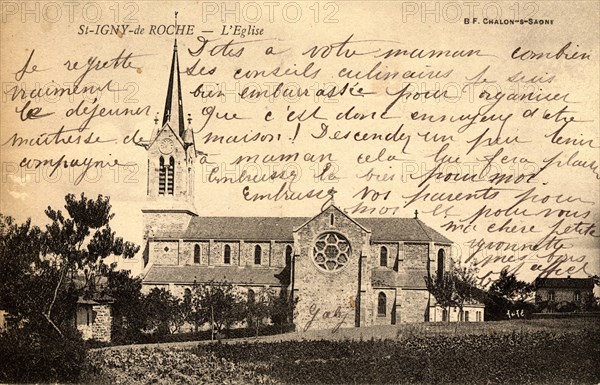 St-IGNY-de ROCHE — L'Eglise
B F. CHALON-S-SAONE
Je regrette
vraiment
le déjeuner
maitresse de
compagnie
Dites à votre maman combien
ses conseils culinaires je suis
bien embarrassée pour organiser
que c'est donc ennuyeux d'être
maison! Descendez un peu tenir
à maman cela lui fera plaisir
Embrassez la bien pour moi
Embrassez vos parents pour
moi et pour vous
ma chère petite